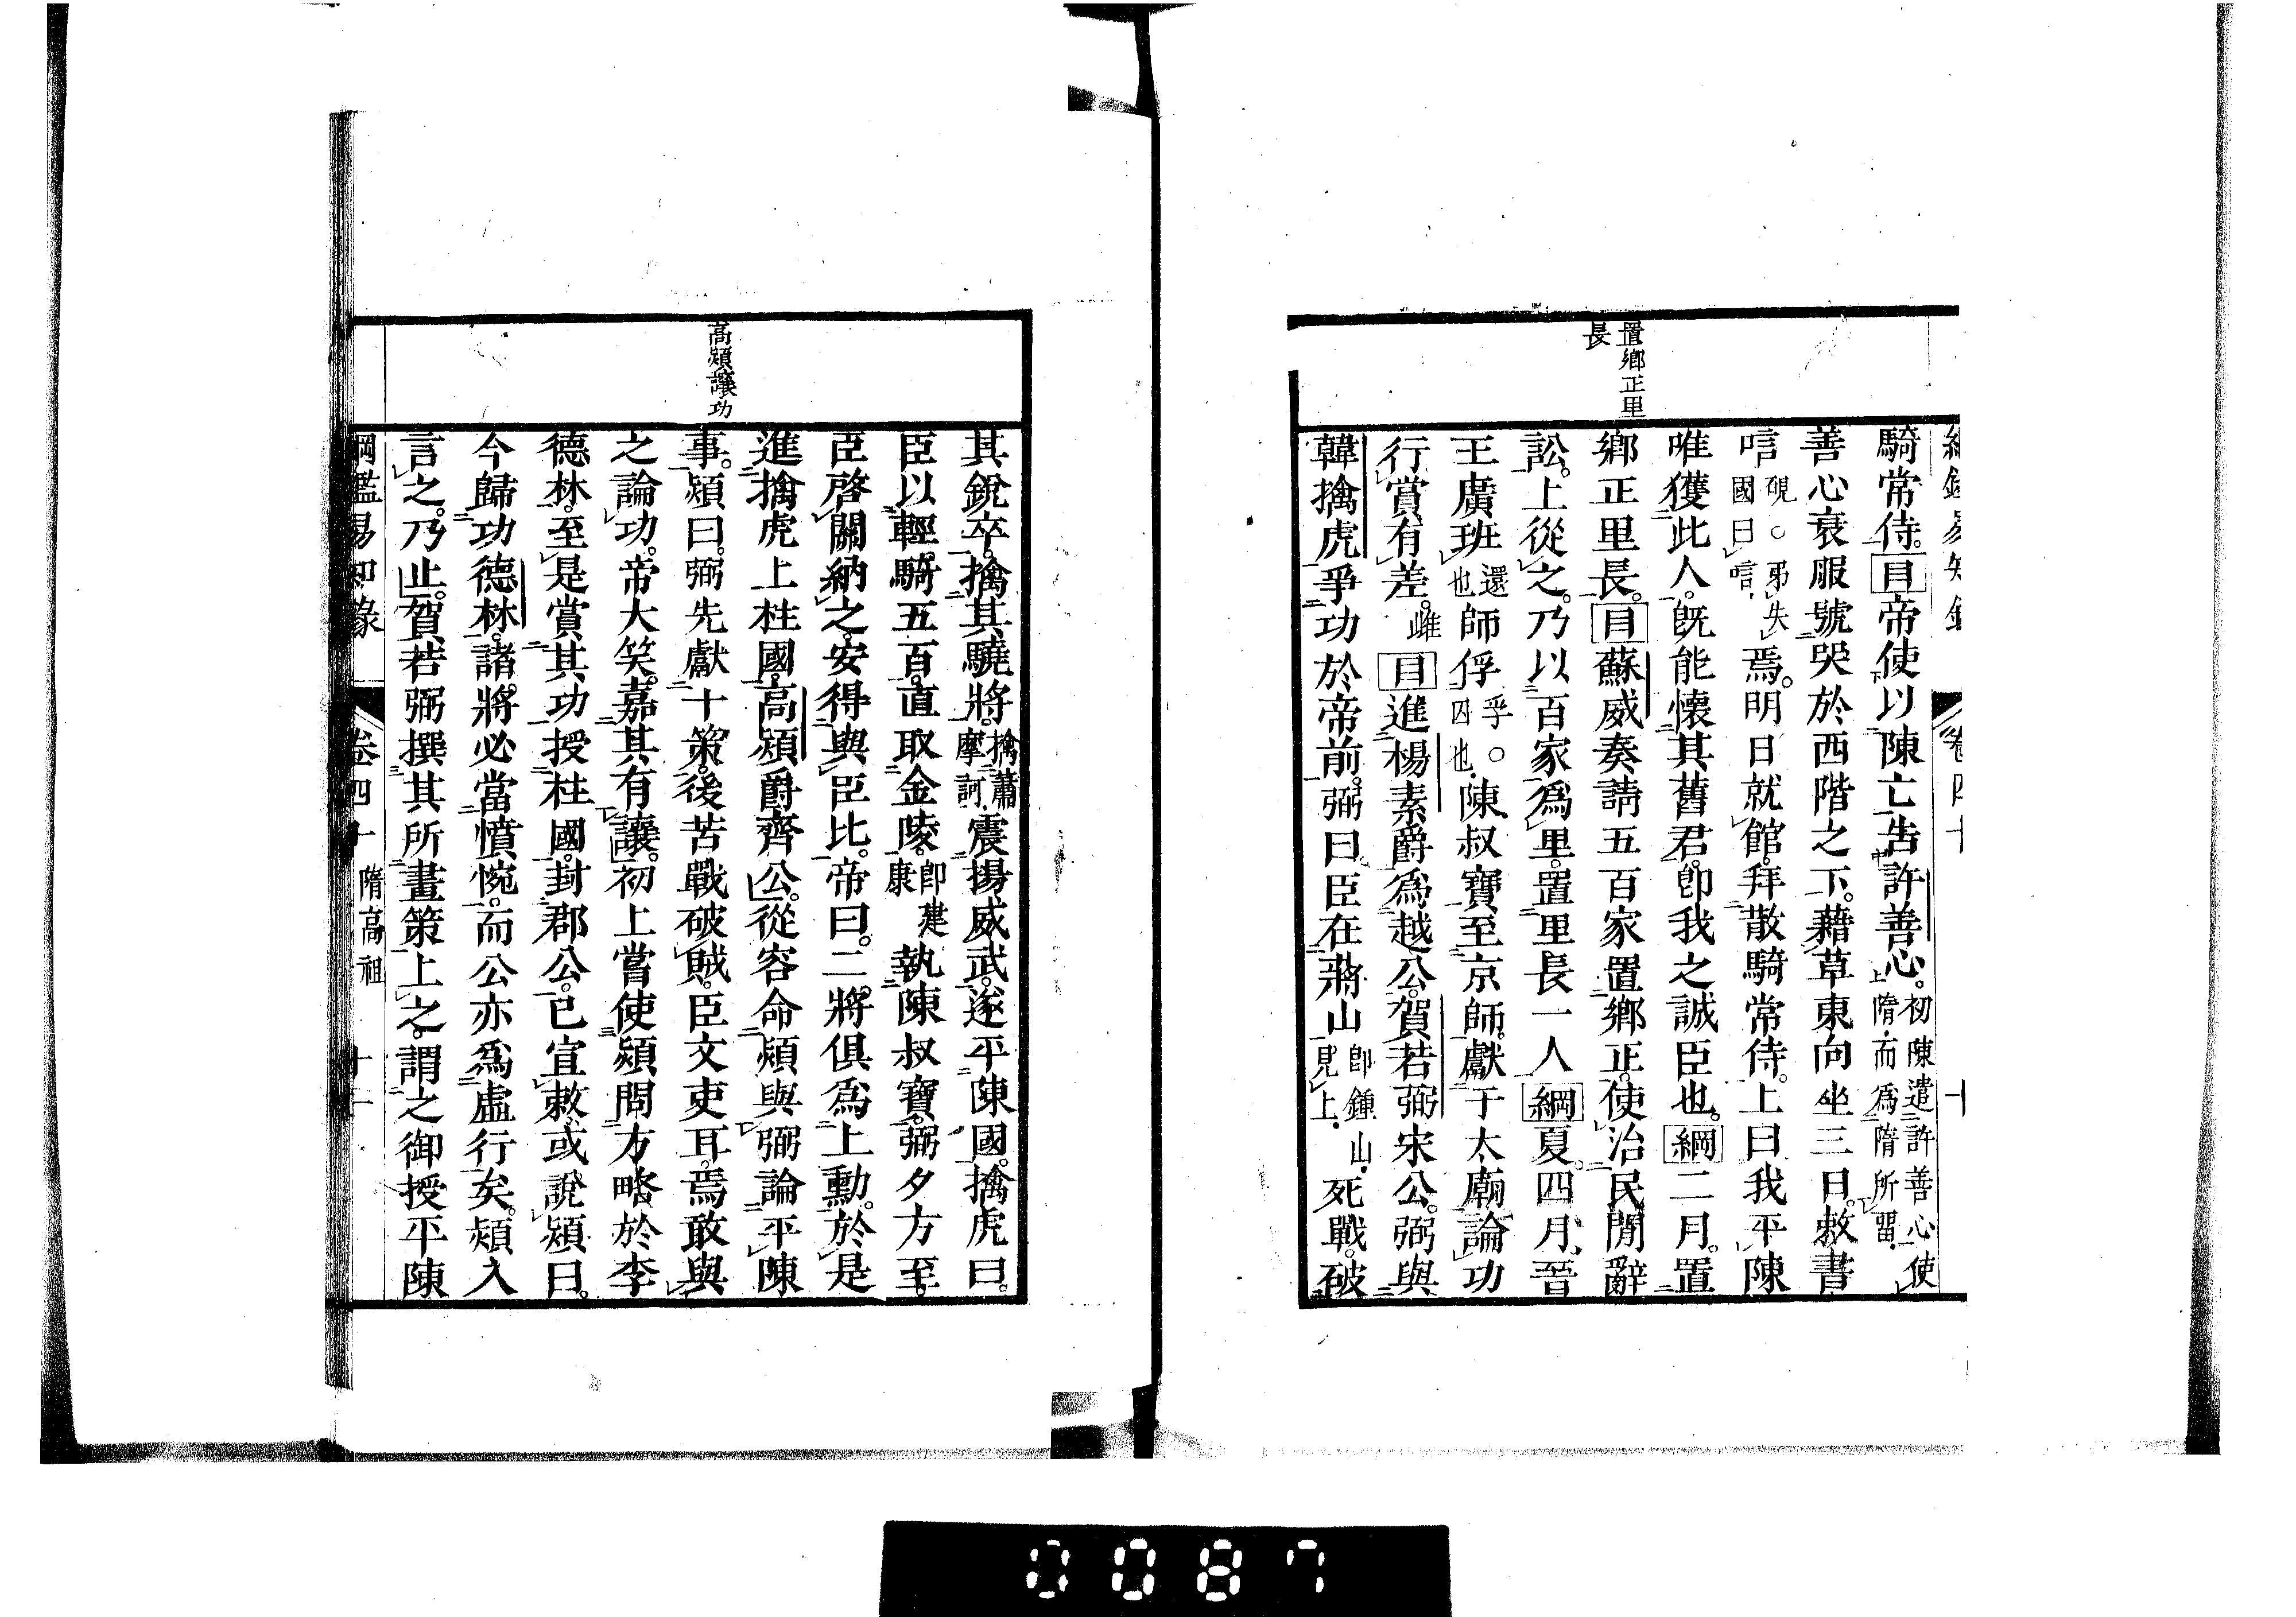 置鄉正里
長
騎常侍。目帝使以陳亡告許善心。初陳遣許善心使
上隋。而爲隋所畱。
善心衰服號哭於西階之下。藉草東向坐三日。敕書
唁硯。○弔失
國曰唁。焉。明日就館。拜散騎常侍。上曰我平陳
唯獲此人。既能懷其舊君。卽我之誠臣也。綱二月。置
鄉正里長。目蘇威奏請五百家置鄉正。使治民閒辭
訟。上從之。乃以百家爲里。置里長一人綱夏。四月、晉
王廣班還
也師俘孚。○
囚也。陳叔寶至京師。獻于太廟。論功
行賞有差。雌目進楊素爵爲越公。賀若弼宋公。弼與
韓擒虎爭功於帝前。弼曰臣在蔣山卽鍾山。
見上。死戰。破
高熲讓功
其銳卒。擒其驍將。擒蕭
摩訶。震揚威武。遂平陳國。擒虎曰。
臣以輕騎五百。直取金陵。卽建
康執陳叔寶。弼夕方至。
臣啓關納之。安得與臣比。帝曰。二將俱爲上勳。於是
進擒虎上柱國。高熲爵齊公。從容命熲與弼論平陳
事。熲曰。弼先獻十策。後苦戰破賊。臣文吏耳。焉敢與
之論功。帝大笑。嘉其有讓。初上嘗使熲問方略於李
德林。至是賞其功授柱國。封郡公。已宣敕。或說熲曰。
今歸功德林。諸將必當憤惋。而公亦爲虛行矣。熲入
言之。乃止。賀若弼撰其所畫策上之。謂之御授平陳
綱鑑易知錄
卷四十
隋高祖
十二
0087